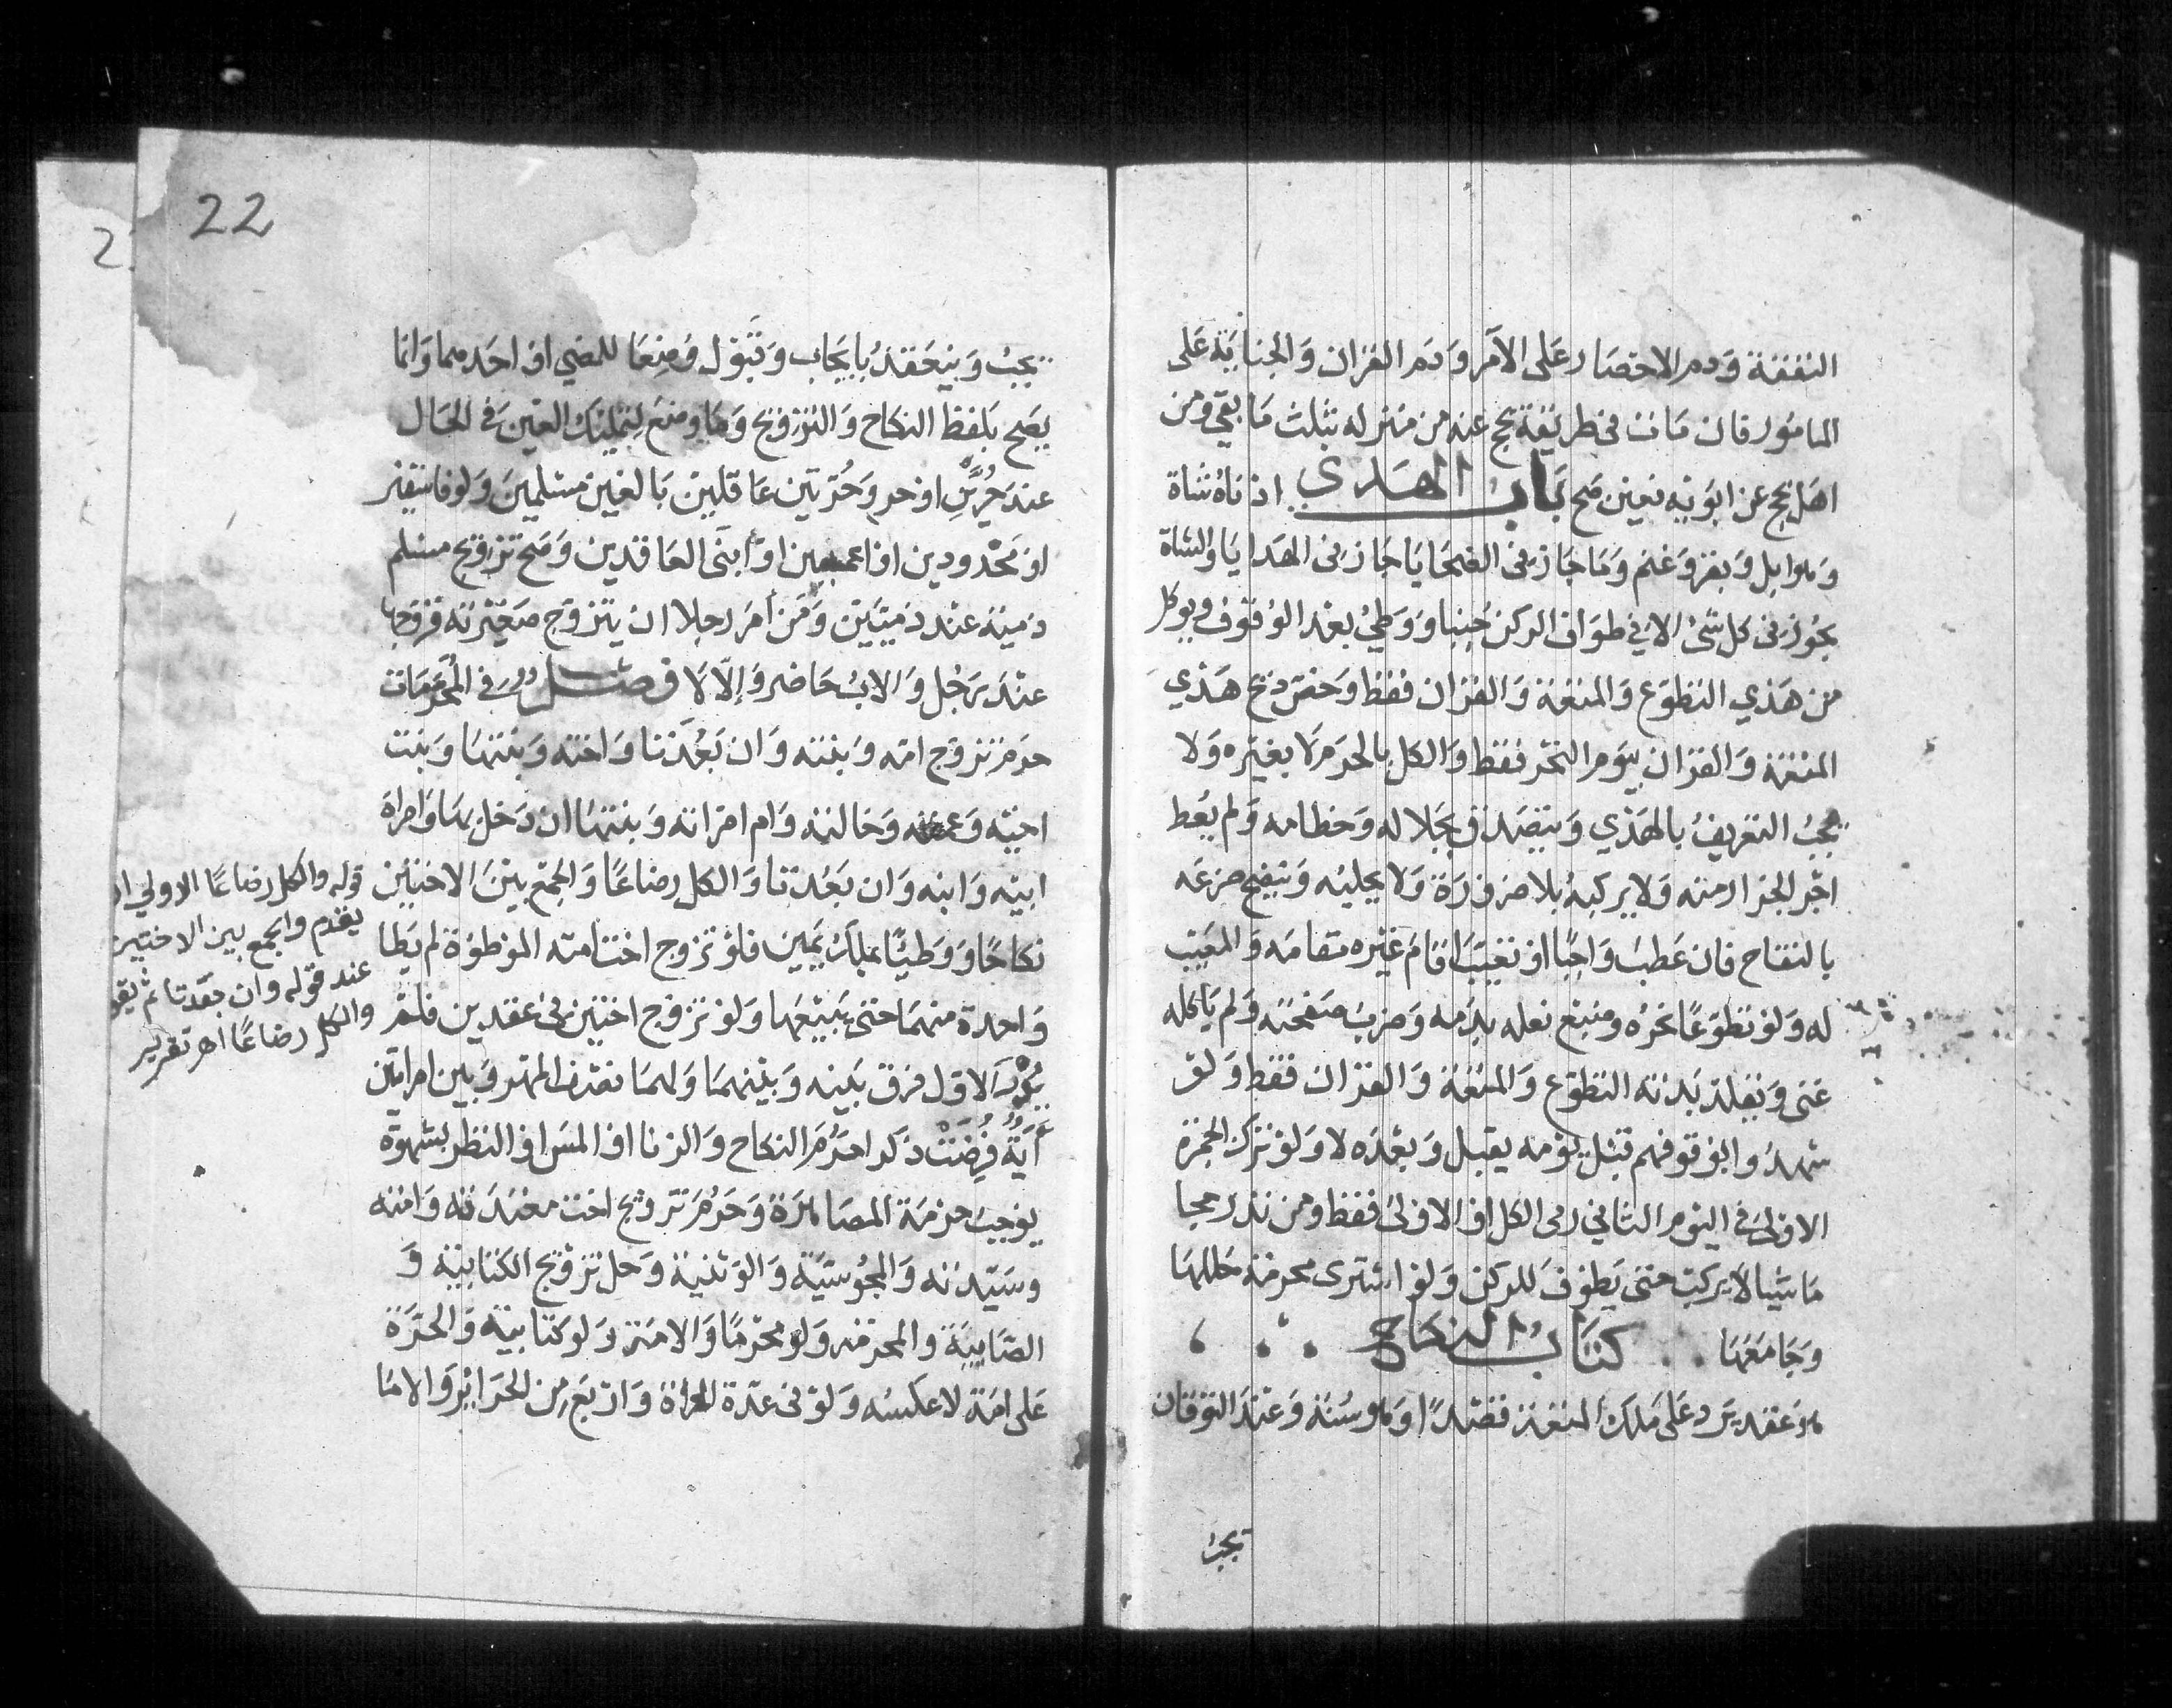 النفقة ودم الاحصار على الآمر ودم القران والجناية على
المامور فان مات في طريقه يحج عنه من منزله بثلث ما بقي ومن
اهل بحج عن ابويه فعين صح باب الهدي ادناه شاة
وهو ابل وبقر وغنم وما جاز في الضحايا جاز في الهدايا والشاة
تجوز في كل شئ الا في طواف الركن جنبا ووطئ بعد الوقوف ويوكل
من هدي التطوع والمتعة والقران فقط وخص ذبح هدي
المتعة والقران بيوم النحر فقط والكل بالحرم لا بفقيره ولا
يجب التعريف بالهدي ويتصدق بجلاله وخطامه ولم يعط
اجر الجزار منه ولا يركبه بلا ضرورة ولا يحلبه وينضح ضرعه
بالنقاح فان عطب واجبا او تعيب اقام غيره مقامه والمعيب
له ولو تطوعا نحره وصبغ نعله بدمه وضرب صفحته ولم ياكله
غنى ويقلد بدنة التطوع والمتعة والقران فقط ولو
شهدوا بوقوفهم قبل يومه يقبل وبعده لا ولو ترك الجمرة
الاولى في اليوم الثاني رمى الكل او الاولى فقط ومن نذر حجا
ماشيا لا يركب حتى يطوف للركن ولو اشترى محرمة حللها
وجامعها كتاب النكاح
هو عقد يرد على ملك المتعة قصدا وهو سنة وعند التوقان
يجب
22
يجب وينعقد بايجاب وقبول وضعا للمضي او احدهما وانما
يصح بلفظ النكاح والتزويج وما وضع لتمليك العين في الحال
عند حرين او حر وحرتين عاقلين بالغين مسلمين ولو فاسقين
او محدودين او اعميين او ابنى العاقدين وصح تزويج مسلم
ذمية عند ذميين ومن امر رجلا ان يزوج صغيرته فزوجها
عند رجل والاب حاضر والا لا فصل في المحرمات
حرم تزوج امه وبنته وان بعدتا واخته وبنتها وبنت
اخيه وعمته وخالته وام امراته وبنتها ان دخل بها وامراة
ابيه وابنه وان بعدتا والكل رضاعا والجمع بين الاختين
نكاحا ووطئا بملك يمين فلو تزوج اخت امته الموطوءة لم يطا
واحدة منهما حتى يبيعها ولو تزوج اختين في عقدين فلم
يدر الاول فرق بينه وبينهما ولهما نصف المهر وبين امراتين
اية فرضت ذكرا حرم النكاح والزنا او المس او النظر بشهوة
يوجب حرمة المصاهرة وحرم تزويج اخت معتدته وامته
وسيدته والمجوسية والوثنية وحل تزويج الكتابية و
الصابية والمحرمة ولو محرما والامة ولو كتابية والحرة
على امة لا عكسه ولو في عدة الحرة واربع من الحرائر والاما
قوله والكل رضاعا الاولى ان
يقدم والجمع بين الاختين
عند قوله وان بعدتا ثم يقو
والكل رضاعا اهـ تقرير